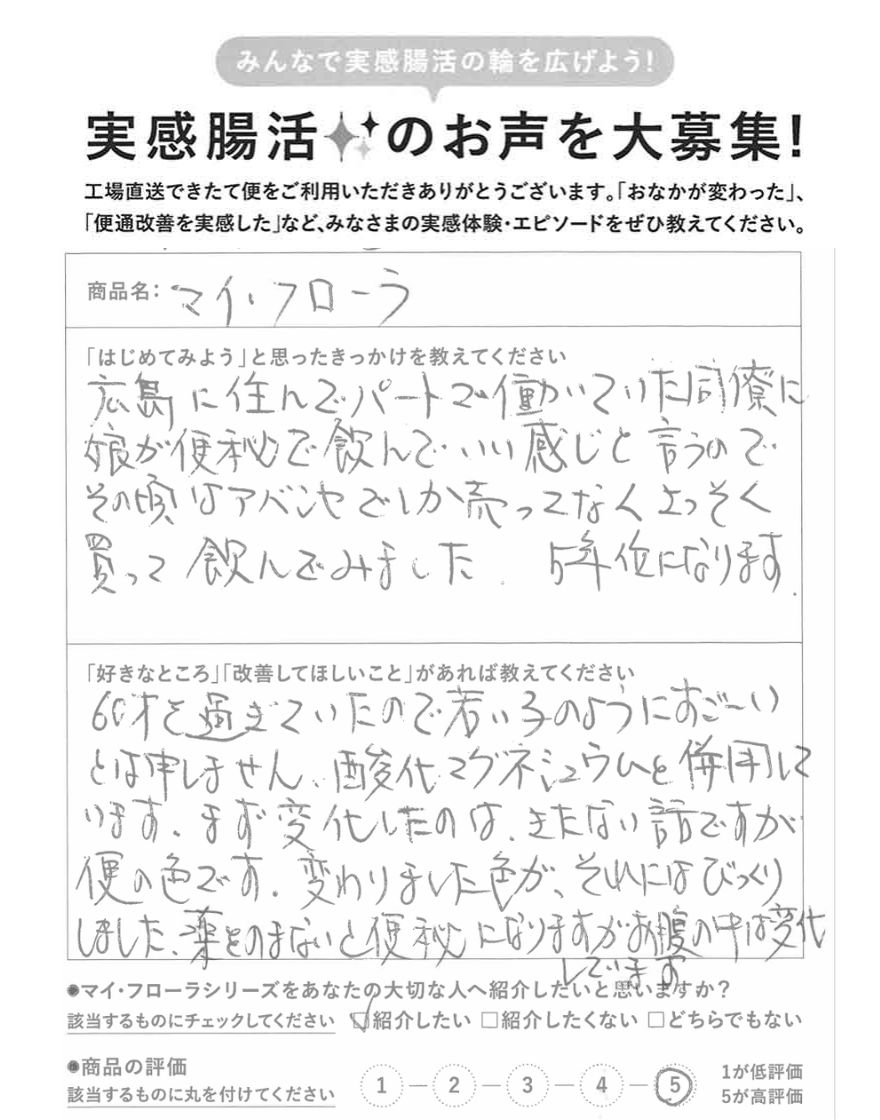 みんなで実感腸活の輪を広げよう!
実感腸活のお声を大募集!
工場直送できたて便をご利用いただきありがとうございます。「おなかが変わった」、
「便通改善を実感した」など、みなさまの実感体験・エピソードをぜひ教えてください。
商品名: マイ・フローラ
「はじめてみよう」と思ったきっかけを教えてください
広島に住んでパートで働いていた同僚に
娘が便秘で飲んでいい感じと言うので
その頃はアバンセでしか売ってなくさっそく
買って飲んでみました. 5年位になります.
「好きなところ」「改善してほしいこと」があれば教えてください
60才を過ぎていたので若い子のようにすご〜い
とは申しません、酸化マグネシュウムと併用して
います、まず変化したのは、きたない話ですが
便の色です. 変わりました色が、それにはびっくり
しました、薬をのまないと便秘になりますがお腹の中は変化
しています
●マイ・フローラシリーズをあなたの大切な人へ紹介したいと思いますか?
該当するものにチェックしてください ☑紹介したい □紹介したくない □どちらでもない
●商品の評価
該当するものに丸を付けてください 1 — 2 — 3 — 4 — 5
1が低評価
5が高評価